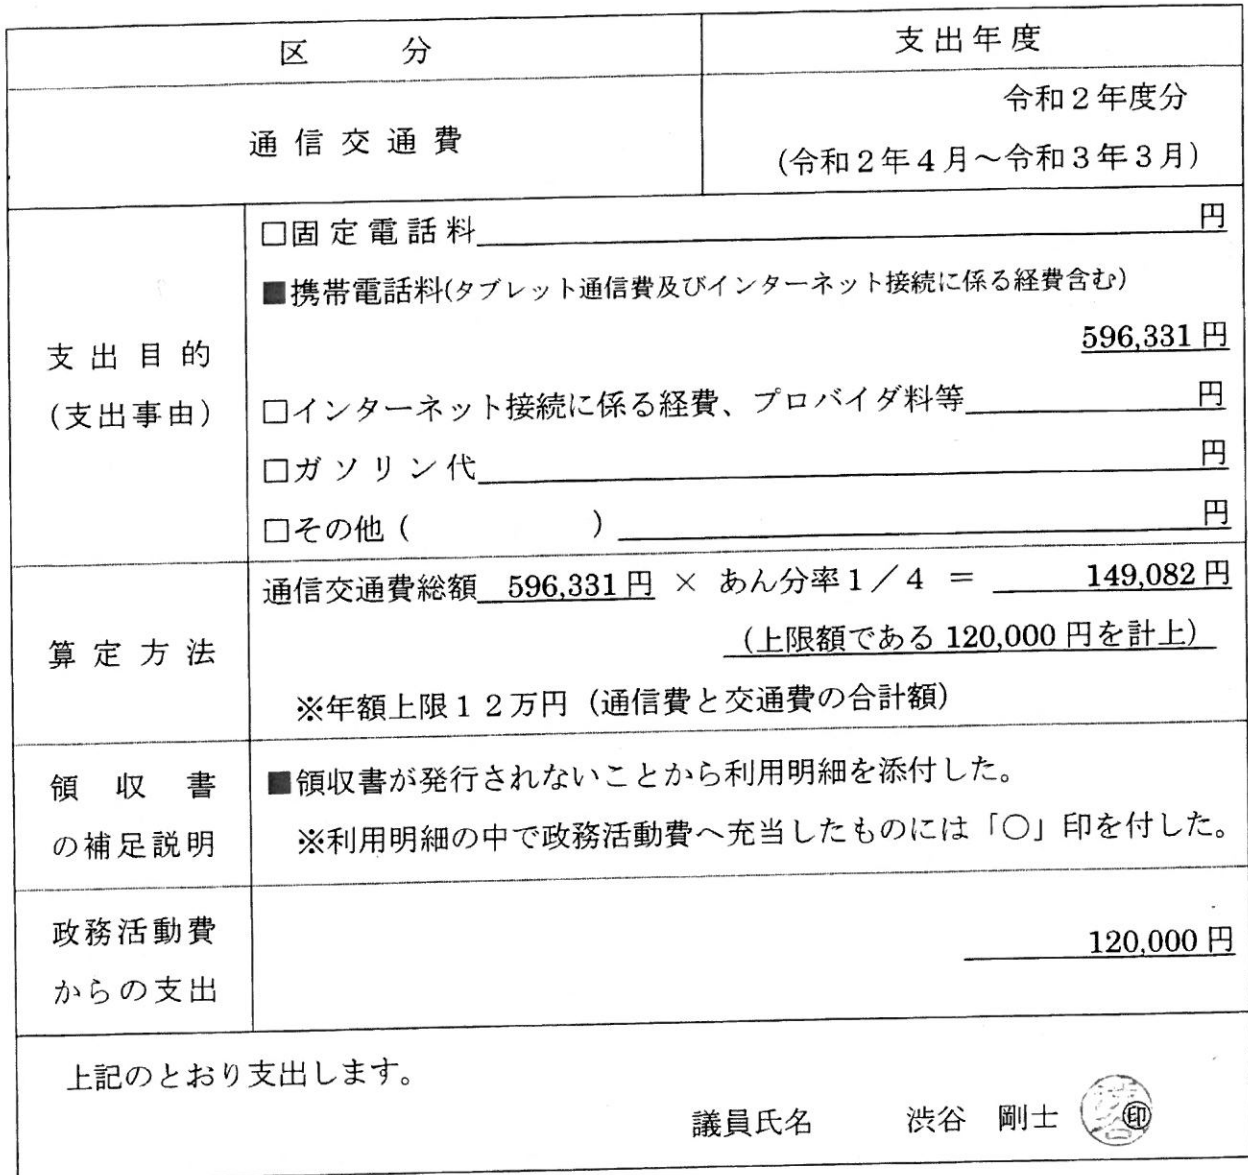 区　　分
支出年度
通信交通費
令和２年度分
(令和２年４月～令和３年３月)
支出目的
(支出事由)
□固定電話料　　　円
■携帯電話料(タブレット通信費及びインターネット接続に係る経費含む)
596,331円
□インターネット接続に係る経費、プロバイダ料等　　　円
□ガソリン代　　　円
□その他（　　　　　）　　　円
算定方法
通信交通費総額　596,331円 × あん分率１／４ ＝ 149,082円
(上限額である 120,000円を計上)
※年額上限１２万円（通信費と交通費の合計額）
領収書
の補足説明
■領収書が発行されないことから利用明細を添付した。
※利用明細の中で政務活動費へ充当したものには「○」印を付した。
政務活動費
からの支出
120,000円
上記のとおり支出します。
議員氏名　　渋谷　剛士　㊞